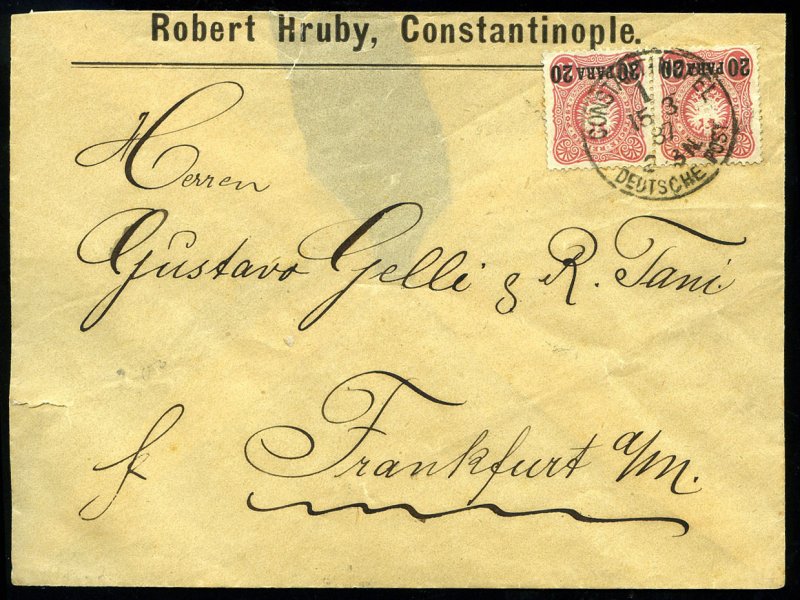 Robert Hruby, Constantinople.
20 PARA 20
20 PARA 20
1
15 3
87
2 3N.
DEUTSCHE POST
Herren
Gustavo Gelli & R. Tani.
Frankfurt a/M.